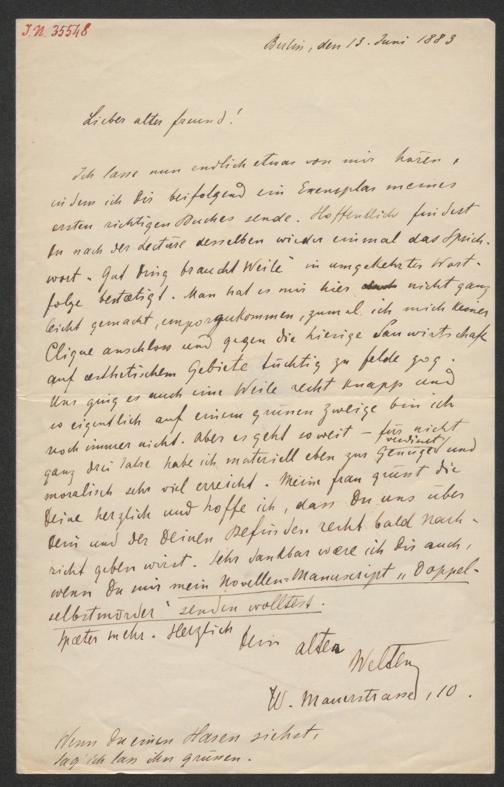 J.N. 35548
Berlin, den 13. Juni 1883
Lieber alter Freund!
Ich lasse nun endlich etwas von mir hören,
indem ich Dir beifolgend ein Exemplar meines
ersten richtigen Buches sende. Hoffentlich findest
Du nach der Lectüre desselben wieder einmal das Sprich-
wort "Gut Ding braucht Weile" in umgekehrter Wort-
folge bestætigt. Man hat es mir hier nicht ganz
leicht gemacht, emporzukommen, zumal ich mich keiner
Clique anschloss und gegen die hiesige Sauwirtschaft
auf æsthetischem Gebiete tüchtig zu Felde zog.
Uns ging es auch eine Weile recht knapp und
so eigentlich auf einem grünen Zweige bin ich
noch immer nicht. Aber es geht so weit – für nicht
ganz drei Jahre habe ich materiell eben zur Genüge verdient und
moralisch sehr viel erreicht. Meine Frau grüsst die
Deine herzlich und hoffe ich, dass Du uns über
Dein und der Deinen Befinden recht bald Nach-
richt geben wirst. Sehr dankbar wære ich Dir auch,
wenn Du mir mein Novellen-Manuscript „Doppel-
selbstmörder" senden wolltest.
Spæter mehr. Herzlich
Dein alter
Welten
W. Mauerstrasse, 10.
Wenn Du einen Hasen siehst,
sag' ich lass ihn grüssen.